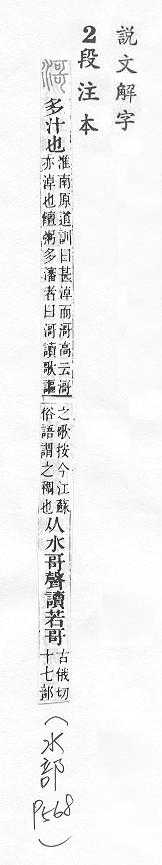 説文解字
2段注本
滒
多汁也
淮南原道訓曰甚淖而滒高云滒
亦淖也饘粥多瀋者曰滒讀歌謳
之歌按今江蘇
俗語謂之稠也
从水哥聲讀若哥
古俄切
十七部
(水部P568)